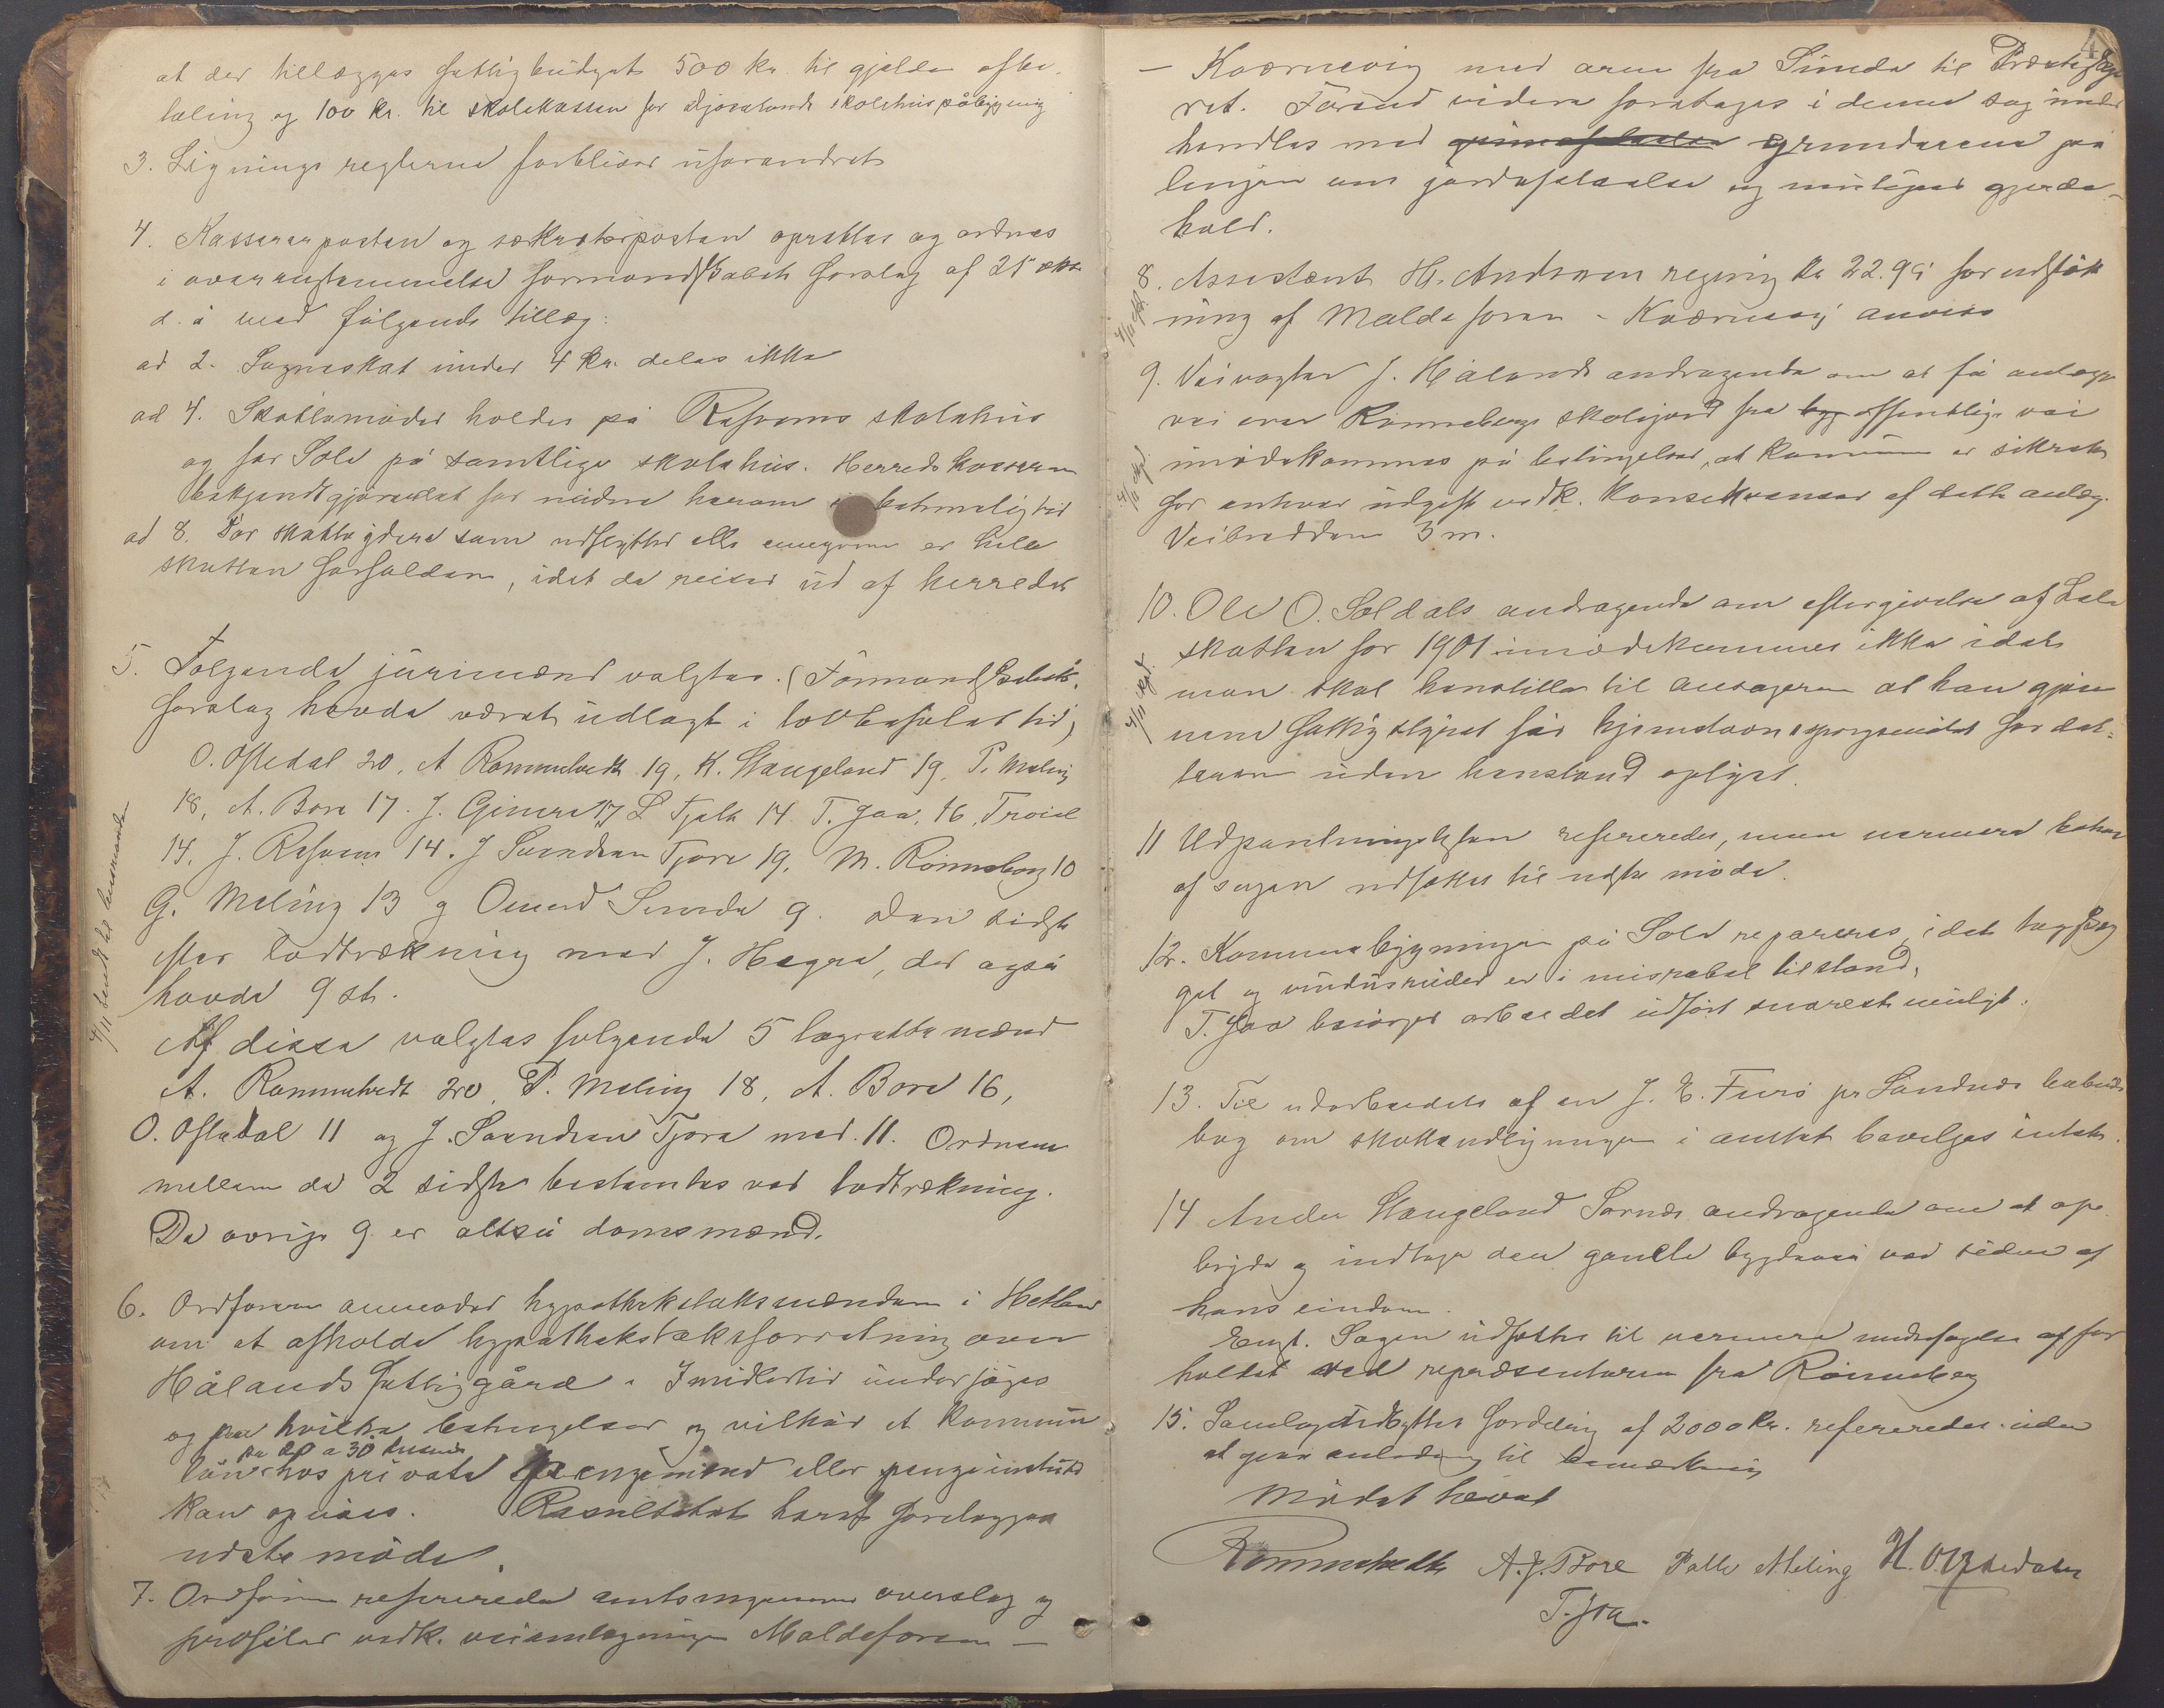 at der tillægges fattigbudgets 500 kr. til gjelds afbe-
taling og 100 kr. til skolekassen for skolehuspåbygning
3. Lignings reglerne forbliver uforandret
4. Kassererposten og sekretærposten oprettes og ordnes
i overensstemmelse formandskabets forslag af 25 okt.
d. å med følgende tillæg:
ad 2. Sogneskat under 4 kr. deles ikke
ad 4. Skattemøder holdes på Refsnes skolehus
og for Sole på samtlige skolehus. Herredskasseren
bekjendtgjørelse for møderne herom betimelig tid
ad 8. For skatteydere som udflytter eller er hele
skatten forfalden, idet de reiser ud af herredet
5. Følgende jurimænd valgtes. (Formandskabets
forslag havde været udlagt i lovbefalet tid)
O. Oftedal 20, A Rommetvedt 19, K. Stangeland 19, P. Meling
18, A. Bore 17. J. Gimre 17 L Tjelta 14 T. Joa. 16,
14, J. Refsnes 14. J Svendsen Tjora 19, M. Rønneberg 10
G. Meling 13 og Omund Sømde 9. Den sidste
efter lodtrækning med J. Hagre, der også
havde 9 st.
Af disse valgtes følgende 5 lagrettemænd
A. Rommetvedt 20, P. Meling 18, A. Bore 16,
O. Oftedal 11 og J. Svendsen Tjora med 11. Ordnen
mellem de 2 sidste bestemtes ved lodtrækning.
De øvrige 9 er altså domsmænd.
6. Ordføreren anmoder hypothekstakstmændene i Hetland
om at afholde hypothekstakstforretning over
Hålands fattiggård. Imidlertid undersøges
og på hvilke betingelser og vilkår et kommun
kr 20 a 30 tusend
lån hos private pengemænd eller pengeinstitut
kan opnåes. Resultatet heraf forelægges
næste møde.
7. Ordføreren refererede amtsingeniørens overslag og
profiler vedk. veiomlægningen Maldeforen —
4/11 sendt
— Kværnevig med arm fra Sunde til
ret. Førend videre foretages i denne sag under
handles med grunneierene på
linjen om jordafståelse og muligens gjerde-
hold.
8. Assistent H. Andersen regning kr 22.95 for udstik
ning af Maldeforen - Kværnevig anvises
9. Veivogter J. Hålands andragende om at få anlægge
vei over Rønnebergs skolejord fra offentlige vei
imødekommes på betingelse, at kommunen er sikret
for enhver udgift vedk. konsekvenser af dette anlæg.
Veibredden 3 m.
10. Ole O. Soldals andragende om eftergivelse af Sole
skatten for 1901 imødekommes ikke idet
man skal henstille til ansøgeren at han gjen
nem fattigstyret får hjemstavnsspørgsmålet for dat-
teren uden henstand oplyst.
11 Udpantningslisten refereredes, men nærmere behan
af sagen udsættes til næste møde.
12. Kommunebygningen på Sole repareres, idet
get og vinduesruder er i miserabel tilstand,
T. Joa besørger arbeidet udført snarest muligt.
13. Til udarbeidelse af en J. E. pr Sandnes
bog om skatteudligningen i amtet bevilges intet.
14 Anders Stangeland Sørnes andragende om at op-
bryde og indtage den gamle bygdevei ved siden af
hans eiendom.
Enst. Sagen udsættes til nærmere undersøgelse af for
holdet ved repræsentanten fra Rønneberg
15. fordeling af 2000 kr. refereredes uden
at give anledning til bemærkning
Mødet hævet
Rommetvedt A. J. Bore Palle Meling H. O. Oftedal
T. Joa.